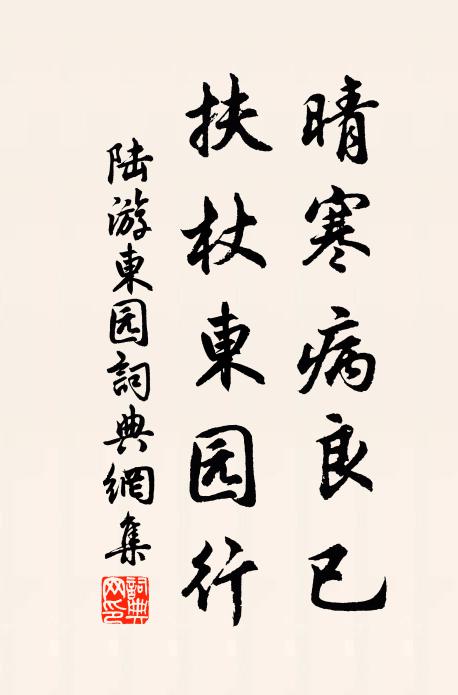 晴寒病良已
扶杖東园行
陆游東园詞典網集
詞典网印